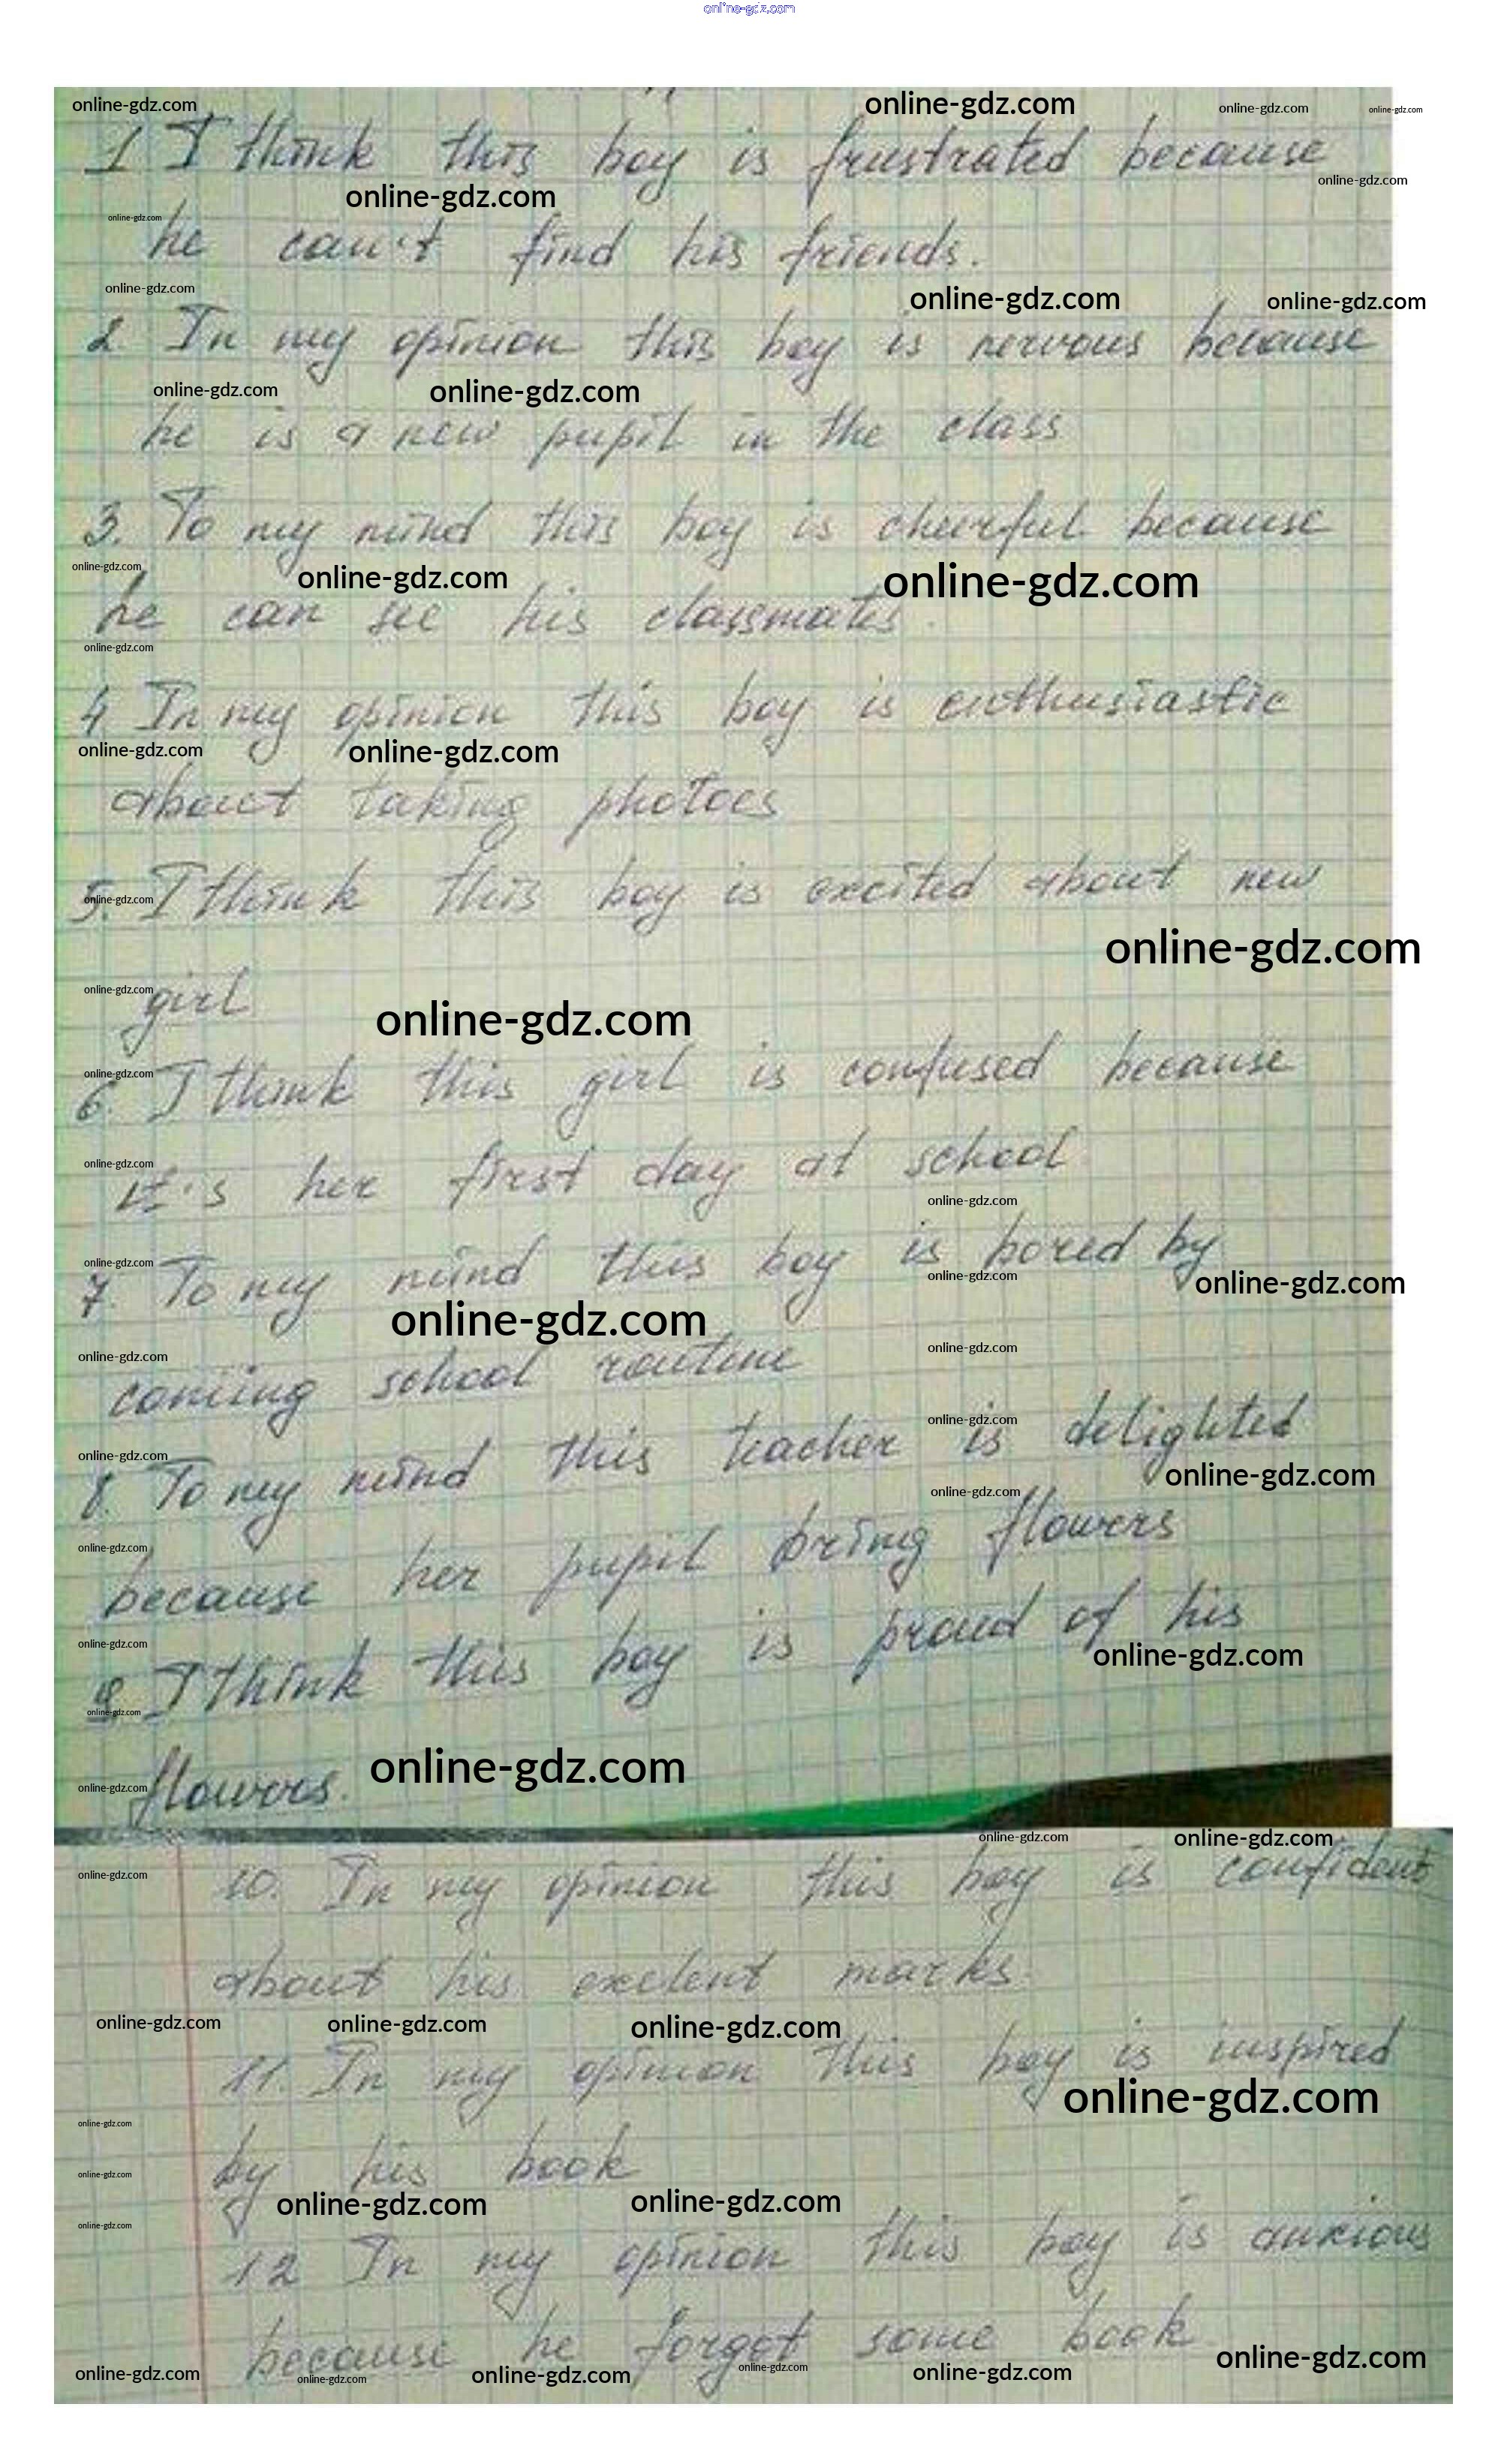 online-gdz.com
online-gdz.com online-gdz.com online-gdz.com online-gdz.com
1 I think this boy is frustrated because
online-gdz.com online-gdz.com
online-gdz.com
he can't find his friends.
online-gdz.com online-gdz.com online-gdz.com
2 In my opinion this boy is nervous because
online-gdz.com online-gdz.com
he is a new pupil in the class
3. To my mind this boy is cheerful because
online-gdz.com online-gdz.com online-gdz.com
he can see his classmates.
online-gdz.com
4 In my opinion this boy is enthusiastic
online-gdz.com online-gdz.com
about taking photoes
5. I think this boy is excited about new
online-gdz.com
online-gdz.com
girl
online-gdz.com online-gdz.com
6. I think this girl is confused because
online-gdz.com
online-gdz.com
it's her first day at school
online-gdz.com
7. To my mind this boy is bored by
online-gdz.com online-gdz.com online-gdz.com
online-gdz.com
coming school routine
online-gdz.com online-gdz.com
8. To my mind this teacher is delighted
online-gdz.com online-gdz.com
online-gdz.com online-gdz.com
because her pupil bring flowers
online-gdz.com
9. I think this boy is proud of his
online-gdz.com online-gdz.com
online-gdz.com
flowers.
online-gdz.com online-gdz.com
online-gdz.com online-gdz.com
10. In my opinion this boy is confident
online-gdz.com
about his exelent marks.
online-gdz.com online-gdz.com online-gdz.com
11. In my opinion this boy is inspired
online-gdz.com
online-gdz.com
by his book
online-gdz.com
online-gdz.com online-gdz.com
online-gdz.com
12 In my opinion this boy is anxious
because he forgot some book
online-gdz.com online-gdz.com online-gdz.com online-gdz.com online-gdz.com online-gdz.com